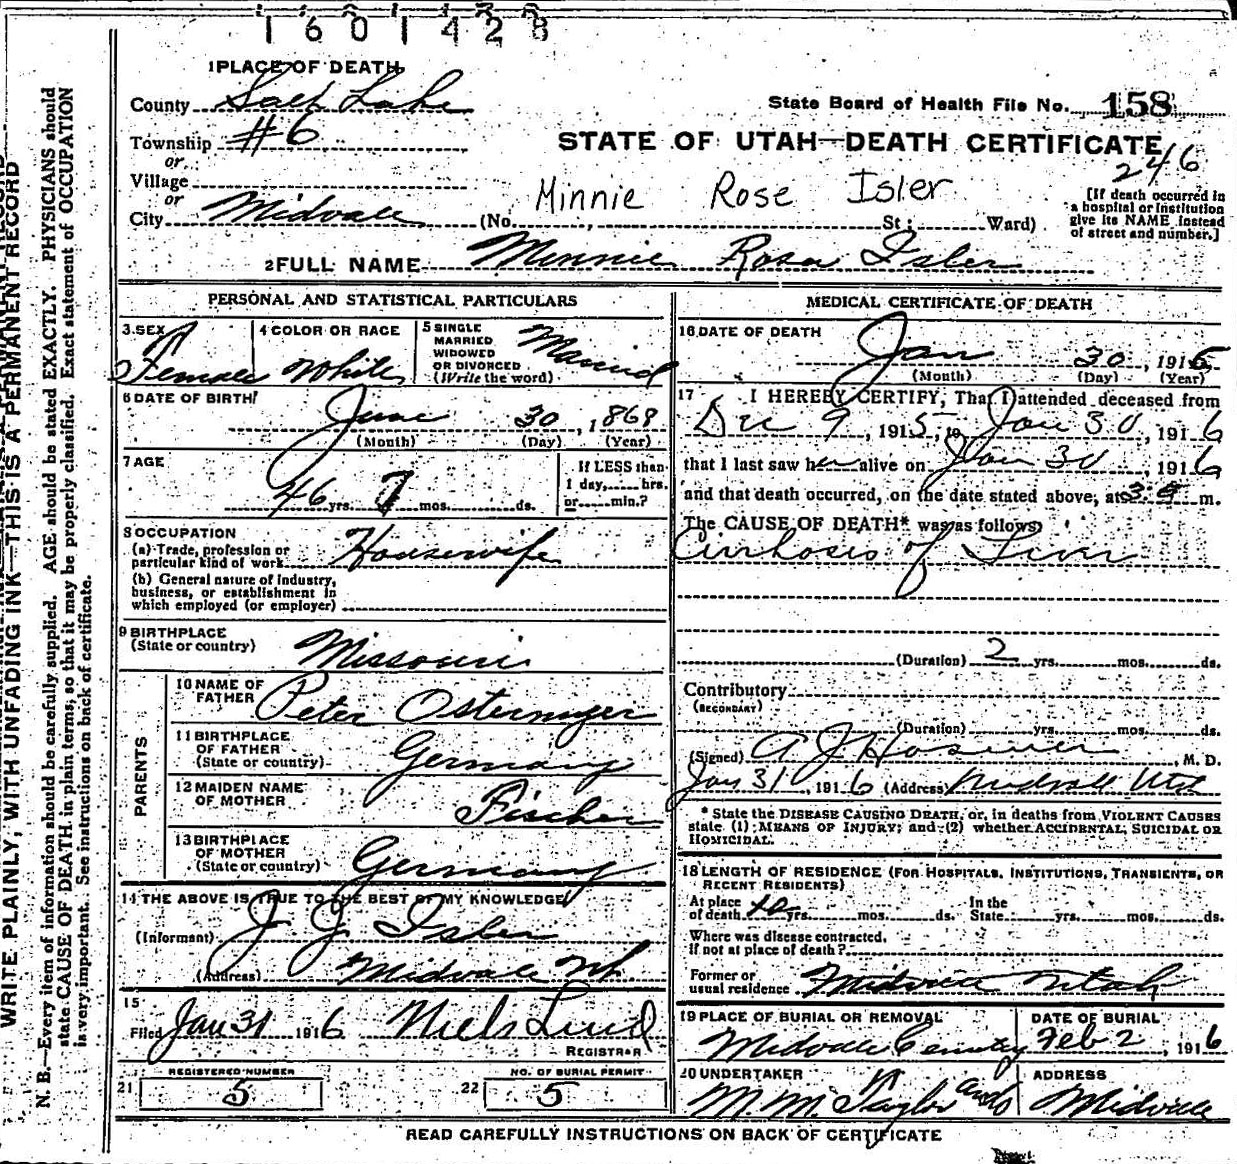 1601428
1 PLACE OF DEATH
County Salt Lake
State Board of Health File No. 158
Township #6
or
STATE OF UTAH—DEATH CERTIFICATE
246
Village
or
Minnie Rose Isler
City Midvale (No. St; Ward)
[If death occurred in
a hospital or institution
give its NAME instead
of street and number.]
2 FULL NAME Minnie Rosa Isler
PERSONAL AND STATISTICAL PARTICULARS
3 SEX Female
4 COLOR OR RACE White
5 SINGLE
MARRIED
WIDOWED
OR DIVORCED
(Write the word) Married
6 DATE OF BIRTH
June 30, 1868
(Month) (Day) (Year)
7 AGE
46 yrs. 7 mos. ds.
If LESS than
1 day, hrs.
or min.?
8 OCCUPATION
(a) Trade, profession or
particular kind of work Housewife
(b) General nature of industry,
business, or establishment in
which employed (or employer)
9 BIRTHPLACE
(State or country) Missouri
PARENTS
10 NAME OF
FATHER Peter Ostermyer
11 BIRTHPLACE
OF FATHER
(State or country) Germany
12 MAIDEN NAME
OF MOTHER Fischer
13 BIRTHPLACE
OF MOTHER
(State or country) Germany
14 THE ABOVE IS TRUE TO THE BEST OF MY KNOWLEDGE
(Informant) J. J. Isler
(Address) Midvale Ut
15
Filed Jan 31 1916 Niels Lind
REGISTRAR
REGISTERED NUMBER
21 5
NO. OF BURIAL PERMIT
22 5
MEDICAL CERTIFICATE OF DEATH
16 DATE OF DEATH
Jan 30, 1916
(Month) (Day) (Year)
17 I HEREBY CERTIFY, That I attended deceased from
Dec 9, 1915, to Jan 30, 1916
that I last saw her alive on Jan 30, 1916
and that death occurred, on the date stated above, at m.
The CAUSE OF DEATH* was as follows:
Cirrhosis of Liver
(Duration) 2 yrs. mos. ds.
Contributory
(SECONDARY)
(Duration) yrs. mos. ds.
(Signed) A J Hosmer, M. D.
Jan 31, 1916 (Address) Midvale Utah
* State the DISEASE CAUSING DEATH, or, in deaths from VIOLENT CAUSES
state (1) MEANS OF INJURY; and (2) whether ACCIDENTAL, SUICIDAL OR
HOMICIDAL.
18 LENGTH OF RESIDENCE (FOR HOSPITALS, INSTITUTIONS, TRANSIENTS, OR
RECENT RESIDENTS)
At place
of death 10 yrs. mos. ds.
In the
State yrs. mos. ds.
Where was disease contracted,
if not at place of death?
Former or
usual residence Midvale Utah
19 PLACE OF BURIAL OR REMOVAL
Midvale Cemetery
DATE OF BURIAL
Feb 2, 1916
20 UNDERTAKER
M. M. Taylor and Co
ADDRESS
Midvale
READ CAREFULLY INSTRUCTIONS ON BACK OF CERTIFICATE
WRITE PLAINLY, WITH UNFADING INK—THIS IS A PERMANENT RECORD
N. B.—Every item of information should be carefully supplied. AGE should be stated EXACTLY. PHYSICIANS should
state CAUSE OF DEATH in plain terms, so that it may be properly classified. Exact statement of OCCUPATION
is very important. See instructions on back of certificate.